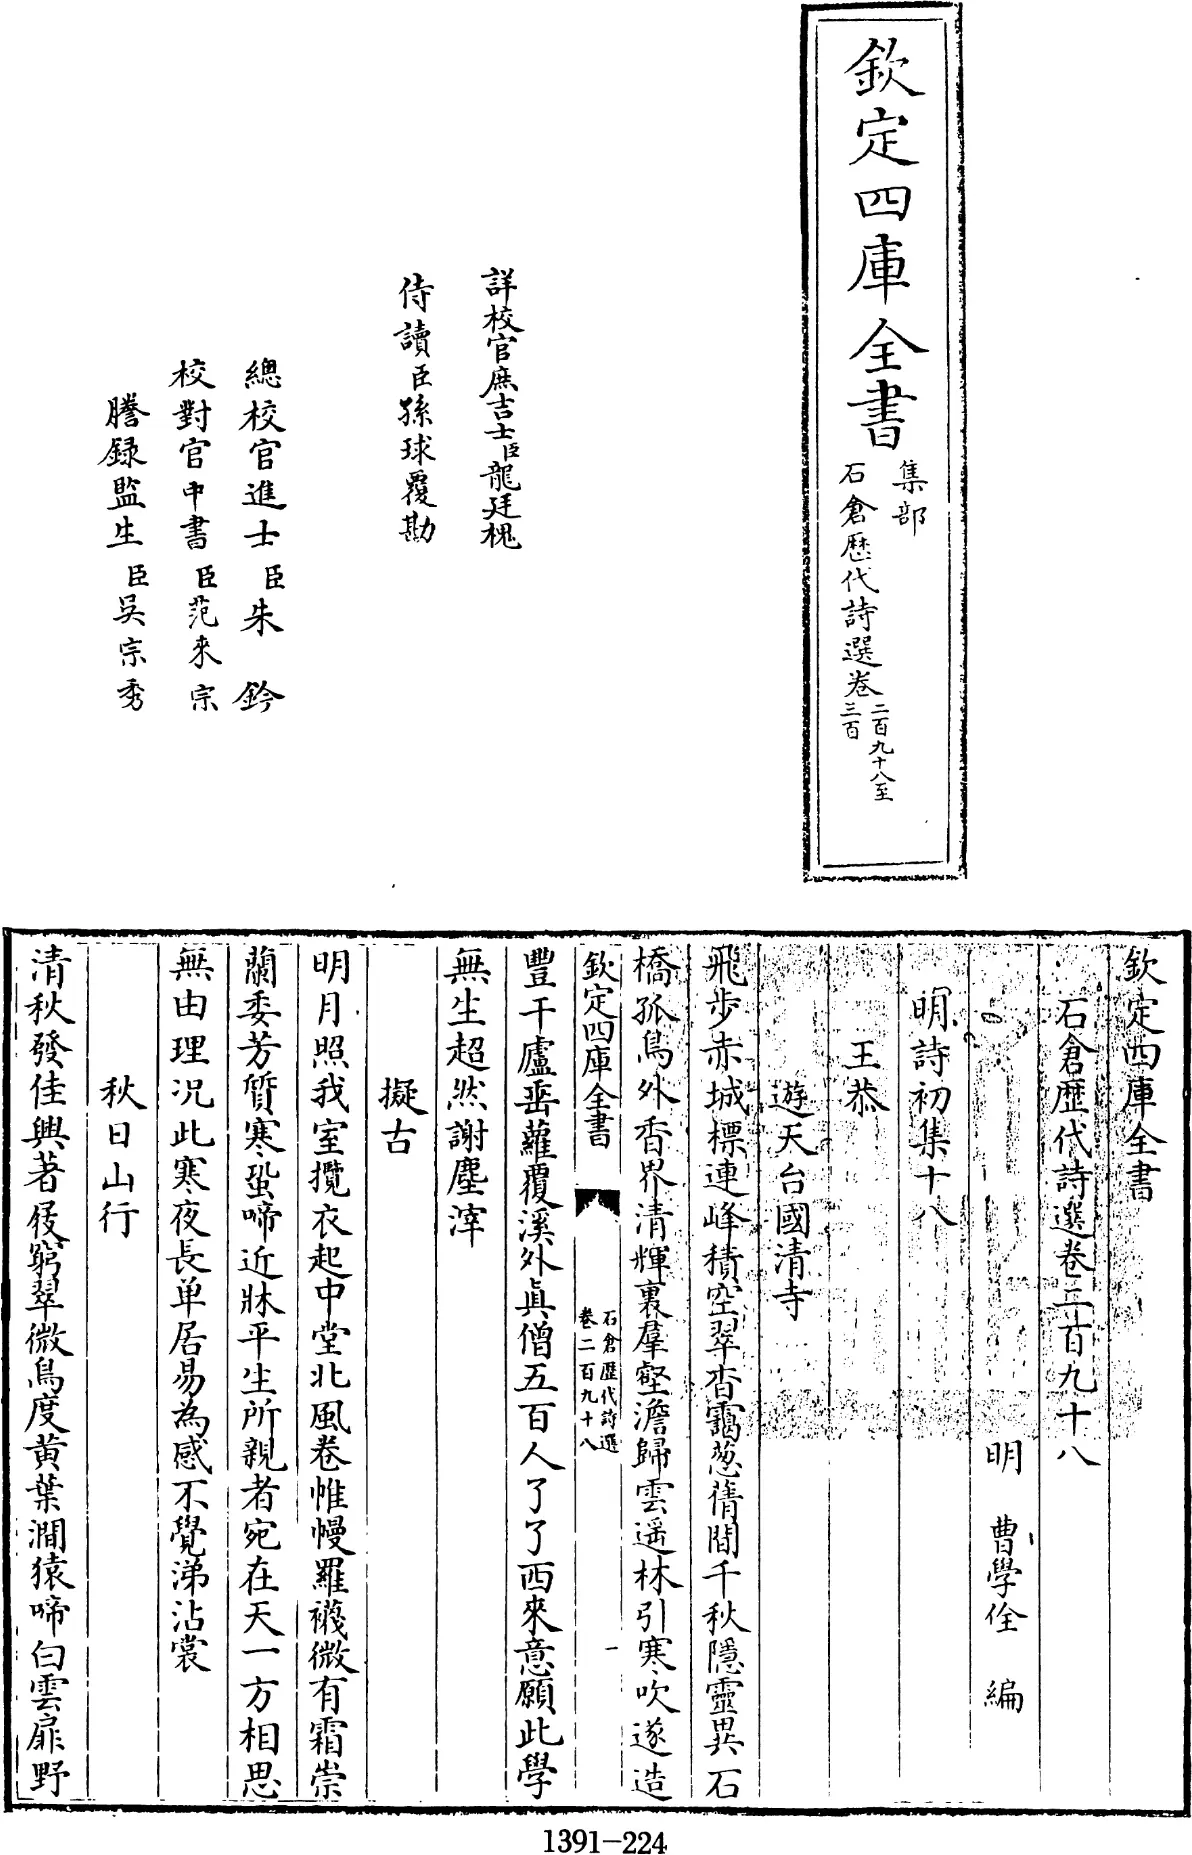 欽定四庫全書
集部
石倉歷代詩選卷二百九十八至
三百
詳校官庶吉士臣龍廷槐
侍讀臣孫球覆勘
總校官進士臣朱鈐
校對官中書臣范來宗
謄錄監生臣吳宗秀
欽定四庫全書
石倉歷代詩選卷二百九十八
明曹學佺編
明詩初集十八
王恭
遊天台國清寺
飛步赤城標連峰積空翠杳靄葱蒨間千秋隱靈異石
橋孤鳥外香界清輝裏羣壑澹歸雲遥林引寒吹遂造
欽定四庫全書
石倉歷代詩選
卷二百九十八
一
豐干廬垂蘿覆溪外眞僧五百人了了西來意願此學
無生超然謝塵滓
擬古
明月照我室攬衣起中堂北風卷帷幔羅襪微有霜崇
蘭委芳質寒蛩啼近牀平生所親者宛在天一方相思
無由理况此寒夜長单居易為感不覺涕沾裳
秋日山行
清秋發佳興著屐窮翠微鳥度黄葉澗猿啼白雲扉野
1391-224